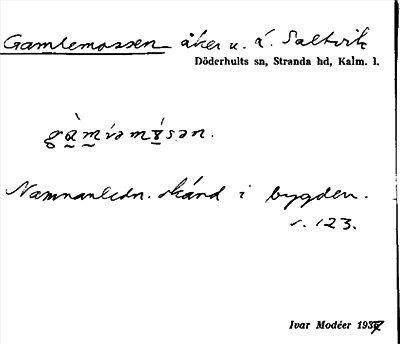 Gamlemossen åker u. å. Saltvik
Döderhults sn, Stranda hd, Kalm. l.
Namnanledn. okänd i bygden.
s. 123.
Ivar Modéer 1937